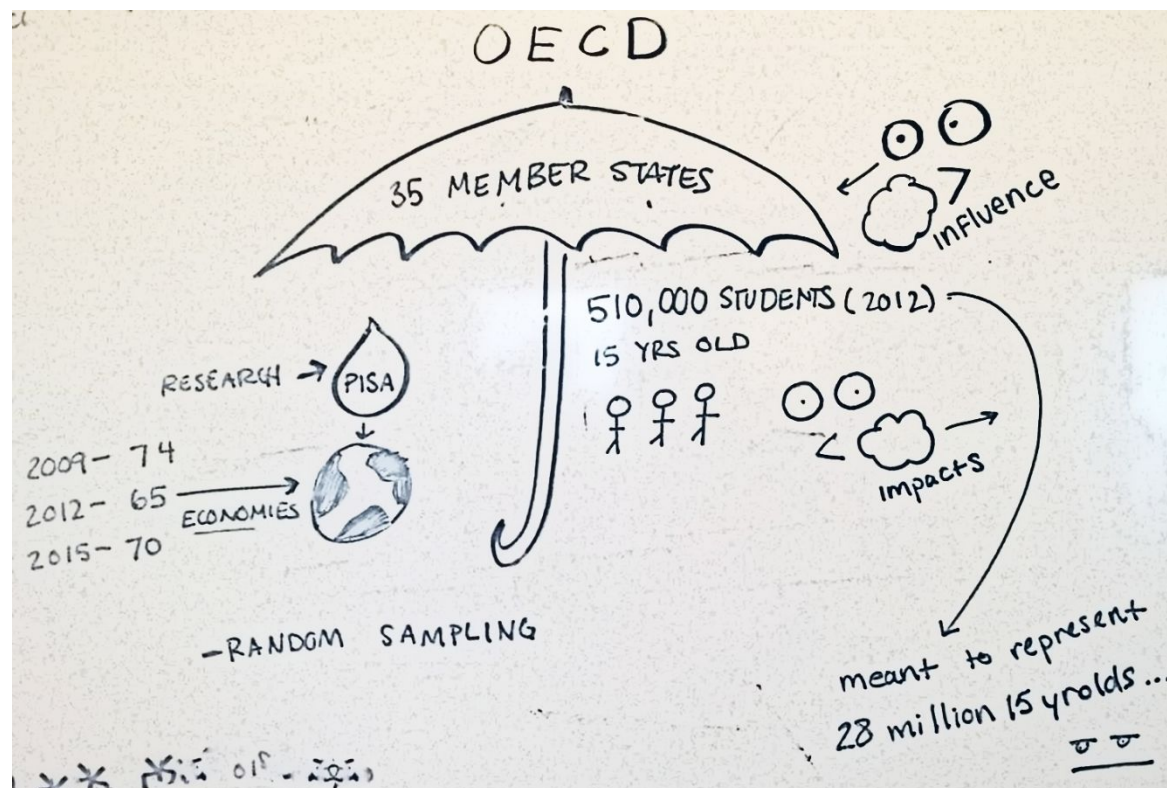 OECD
35 MEMBER STATES
influence
510,000 STUDENTS (2012)
15 YRS OLD
RESEARCH
PISA
2009- 74
2012- 65
ECONOMIES
2015- 70
impacts
-RANDOM SAMPLING
meant to represent
28 million 15 yrolds...